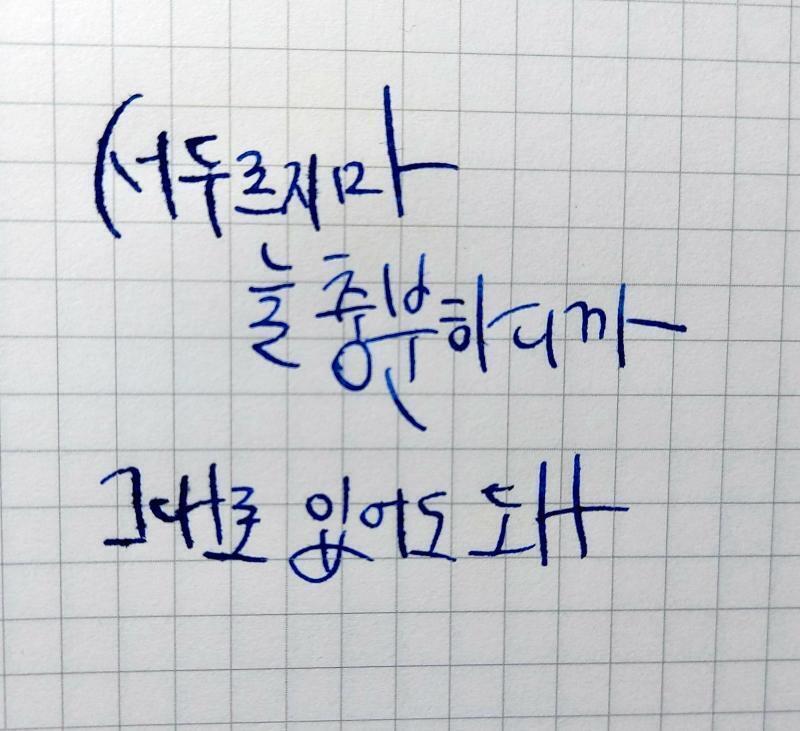 (서두르지마
늘 충분하니까
그대로 있어도 돼